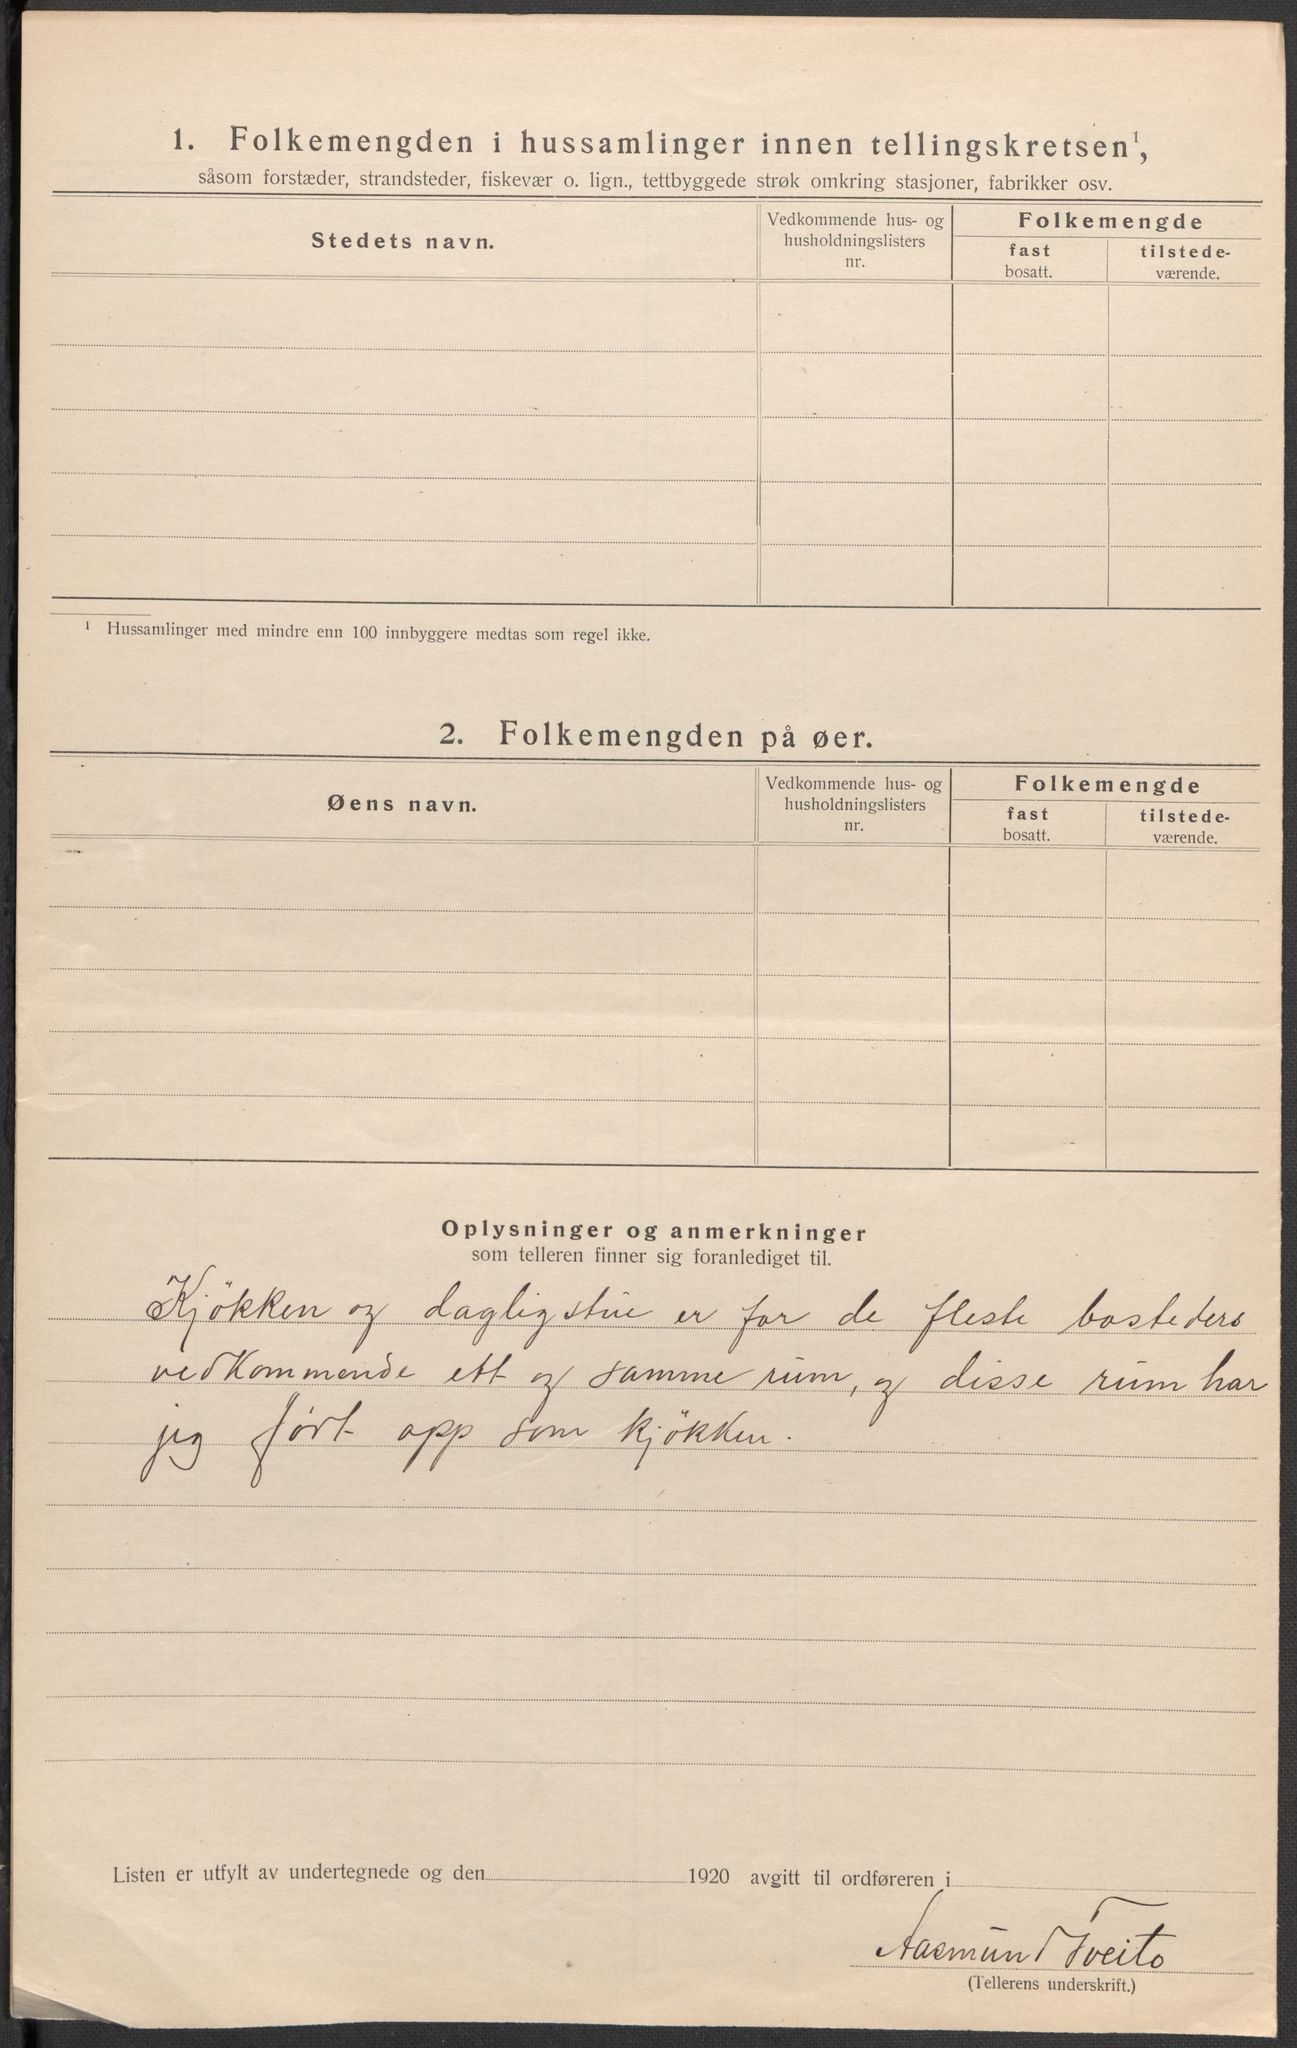 1. Folkemengden i hussamlinger innen tellingskretsen¹,
såsom forstæder, strandsteder, fiskevær o. lign., tettbyggede strøk omkring stasjoner, fabrikker osv.
Stedets navn.
Vedkommende hus- og
husholdningslisters
nr.
Folkemengde
fast
bosatt.
tilstede-
værende.
¹ Hussamlinger med mindre enn 100 innbyggere medtas som regel ikke.
2. Folkemengden på øer.
Øens navn.
Vedkommende hus- og
husholdningslisters
nr.
Folkemengde
fast
bosatt.
tilstede-
værende.
Oplysninger og anmerkninger
som telleren finner sig foranlediget til.
Kjökken og dagligstue er for de fleste bosteders
vedkommende ett og samme rum, og disse rum har
jeg ført opp som kjökken.
Listen er utfylt av undertegnede og den 1920 avgitt til ordføreren i
Aasmund Tveito
(Tellerens underskrift.)